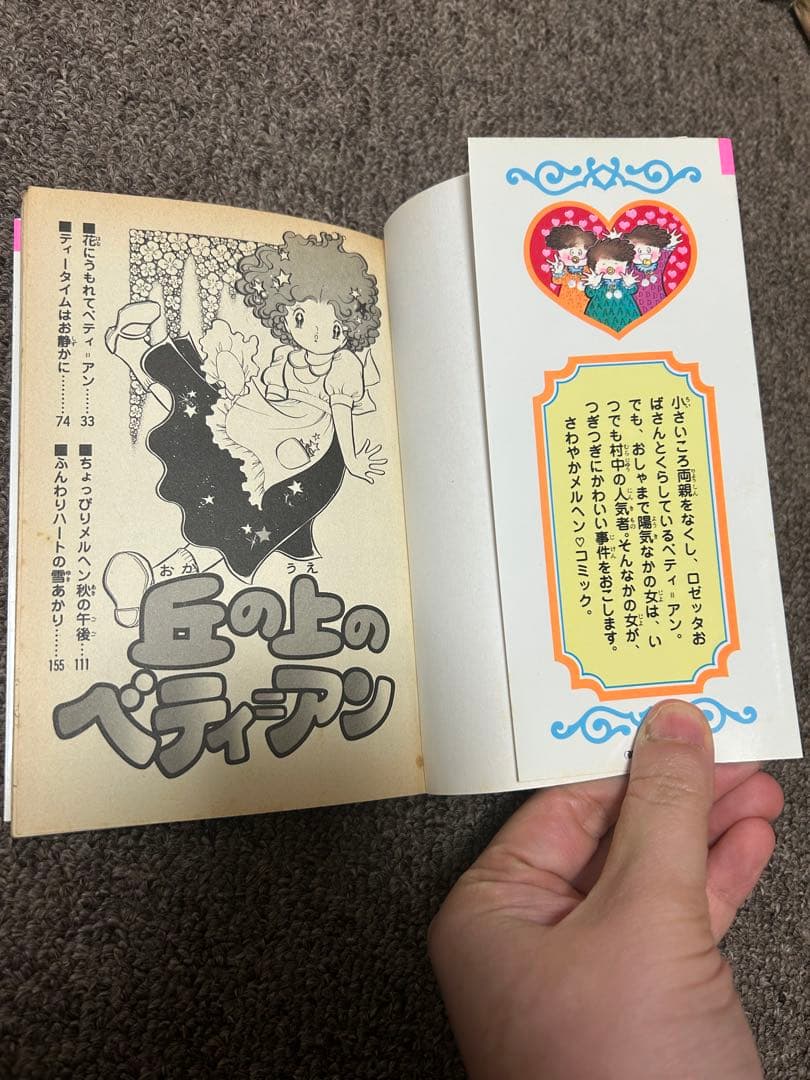 小さいころ両親をなくし、ロゼッタお
ばさんとくらしているベティ=アン。
でも、おしゃまで陽気なかの女は、い
つでも村中の人気者。そんなかの女が、
つぎつぎにかわいい事件をおこします。
さわやかメルヘン♡コミック。
丘の上の
ベティ=アン
■花にうもれてベティ=アン……33
■ティータイムはお静かに………74
■ちょっぴりメルヘン秋の午後…111
■ふんわりハートの雪あかり……155